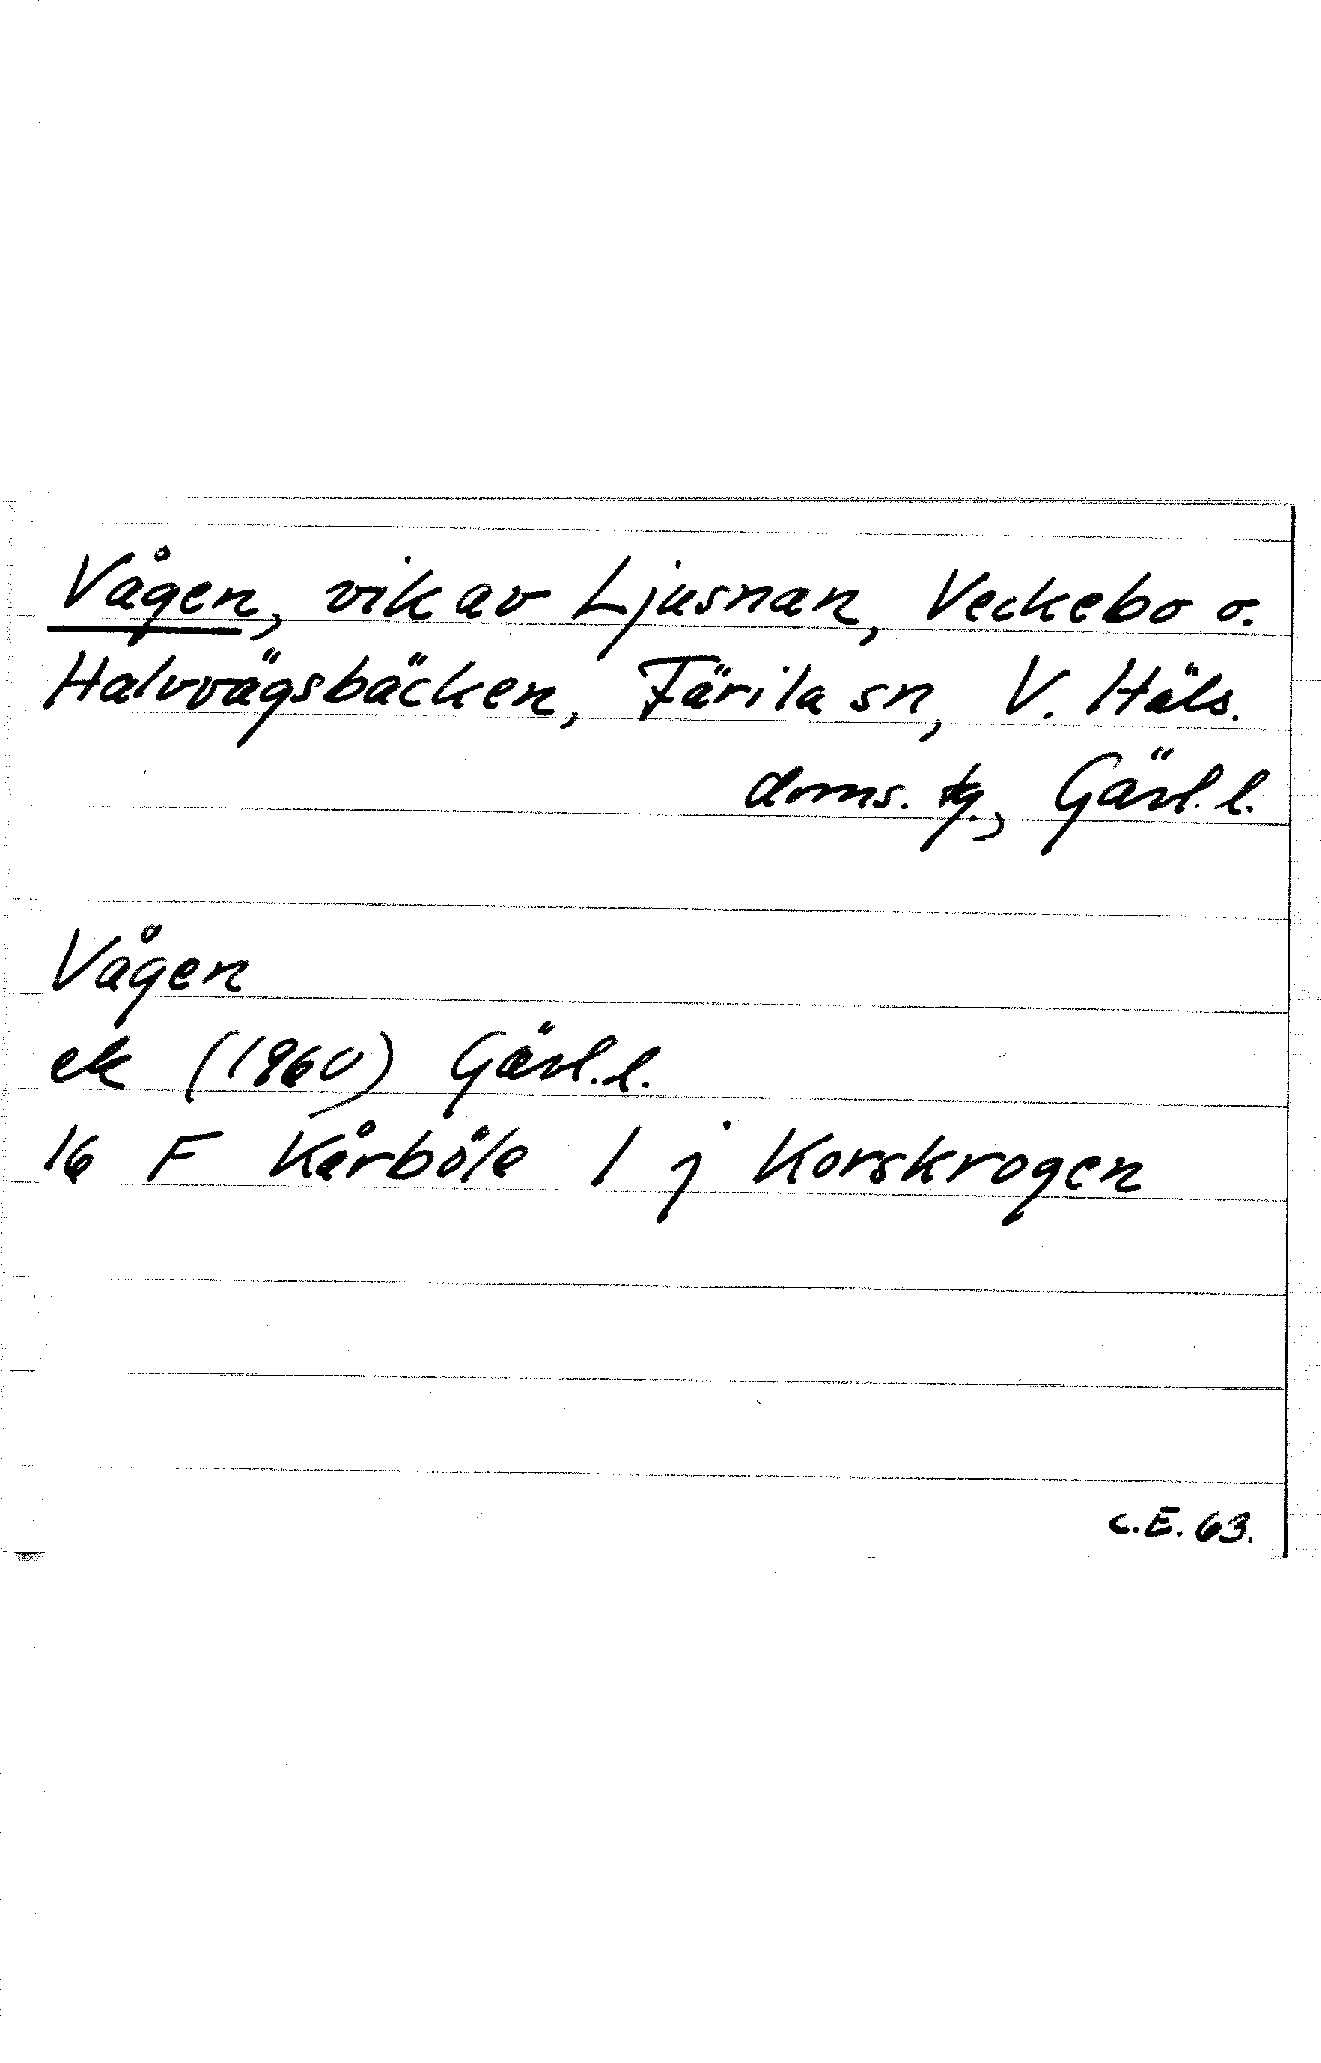 Vågen, vik av Ljusnan, Veckebo o.
Halvvägsbäcken, Färila sn, V. Häls.
doms. tg., Gävl. l.
Vågen
ek (1960) Gävl. l.
16 F Kårböle 1 j Korskrogen
C.E. 63.